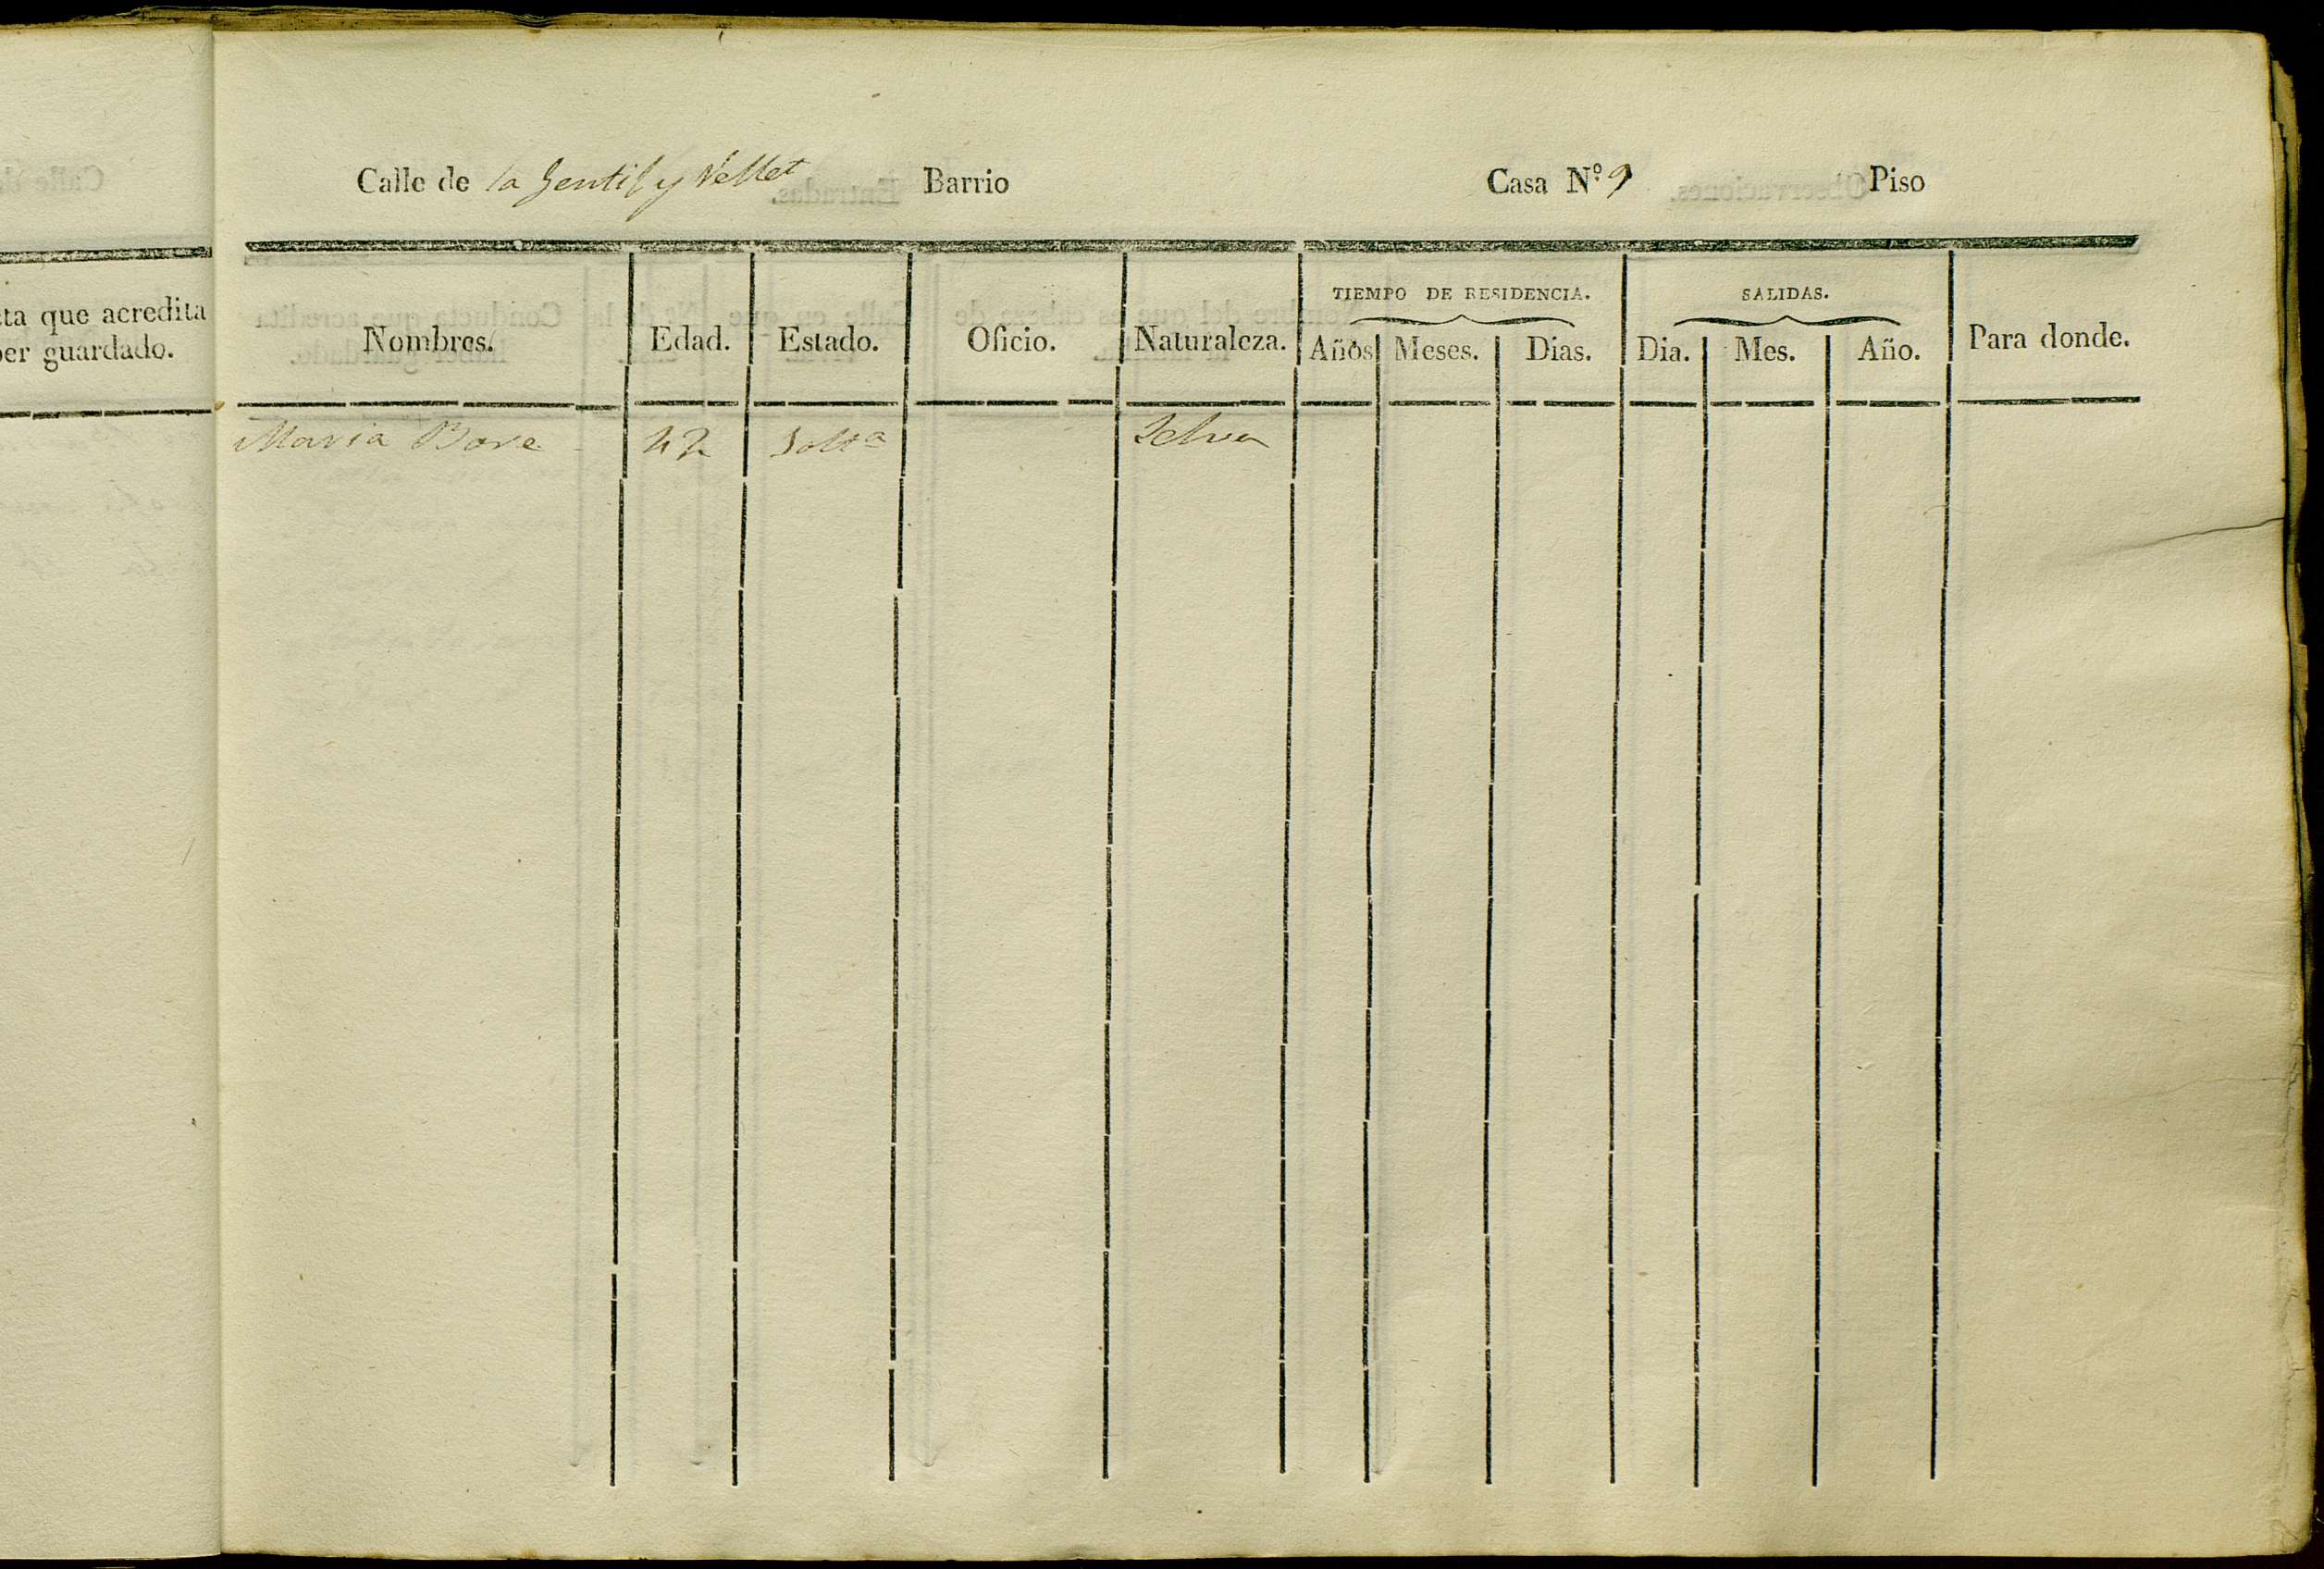 ta que acredita
er guardado.
Calle de la Gentil y Vellet Barrio Casa N.º 9 Piso
TIEMPO DE RESIDENCIA. SALIDAS.
Nombres. Edad. Estado. Oficio. Naturaleza. Años Meses. Dias. Dia. Mes. Año. Para donde.
Maria Bove 42 Solt.ª Selva